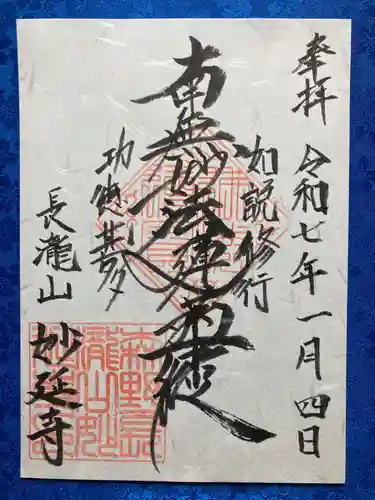 奉拝
令和七年一月四日
如説修行
南無妙法蓮華経
功徳甚多
長瀧山
妙延寺